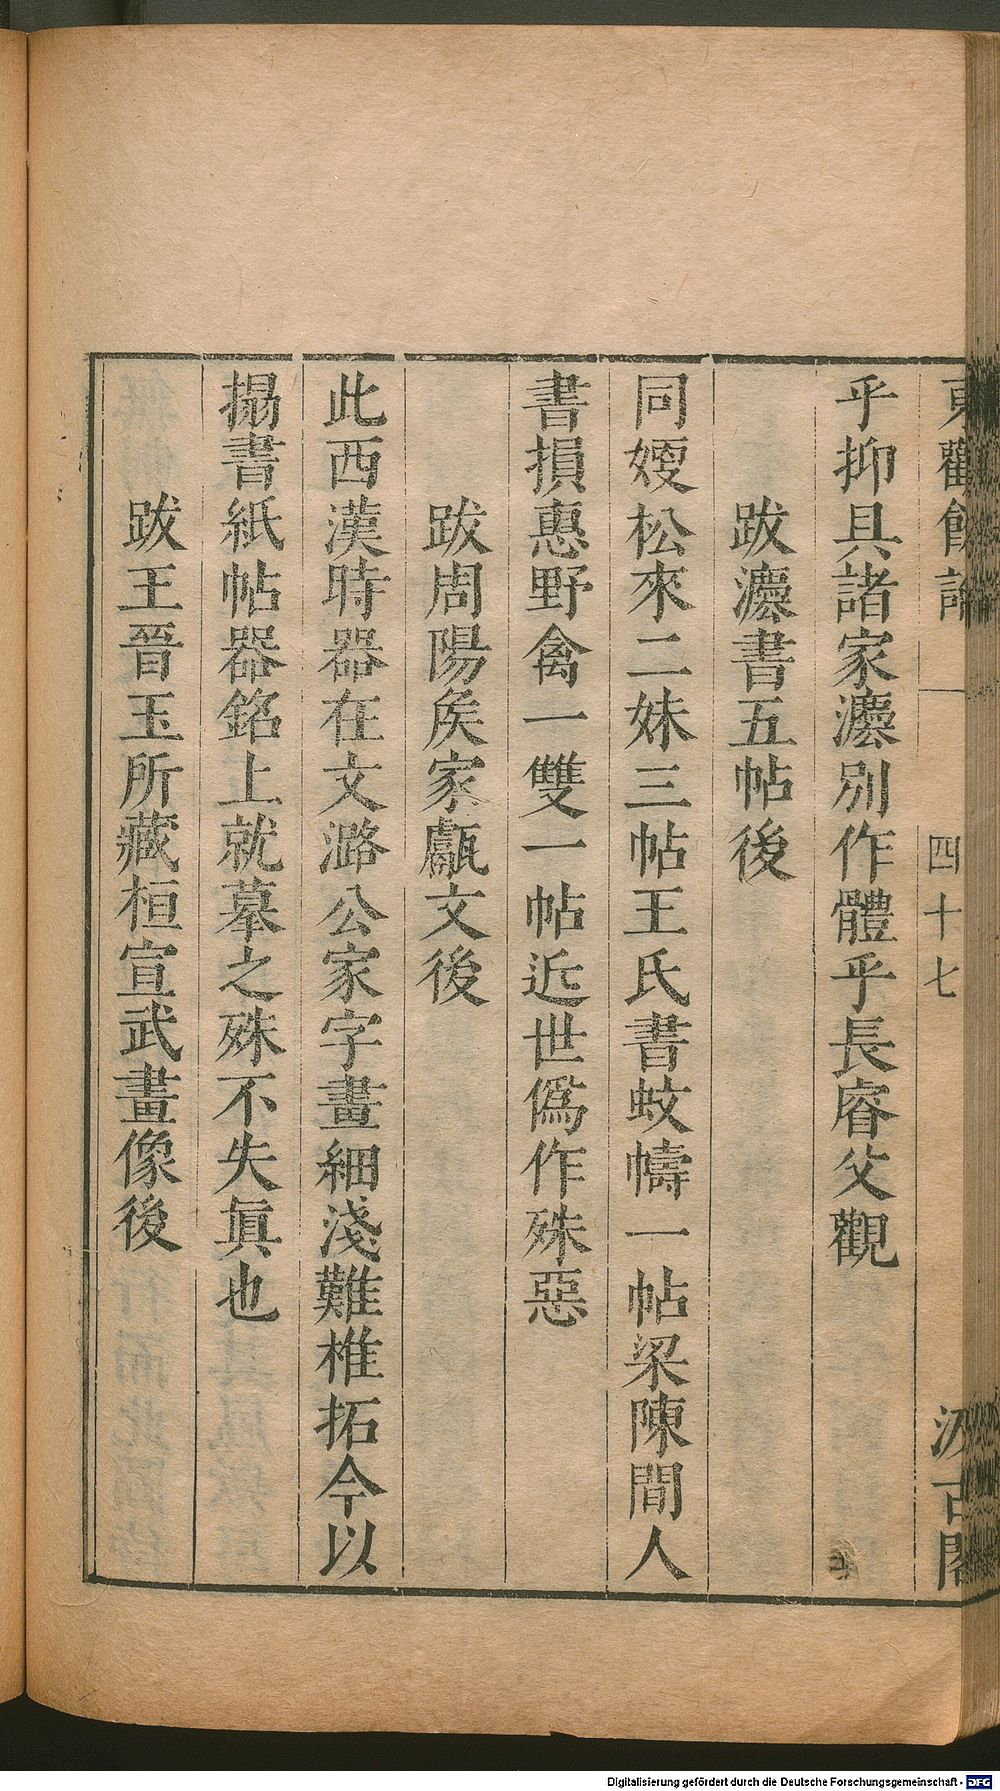 東觀餘論
四十七
汲古閣
乎抑具諸家灋別作體乎長睿父觀
跋灋書五帖後
同嫂松來二妹三帖王氏書蚊幬一帖梁陳間人
書損惠野禽一雙一帖近世僞作殊惡
跋周陽矦家甗文後
此西漢時器在文潞公家字畫細淺難椎拓今以
搨書紙帖器銘上就摹之殊不失眞也
跋王晉玉所藏桓宣武畫像後
Digitalisierung gefördert durch die Deutsche Forschungsgemeinschaft - DFG